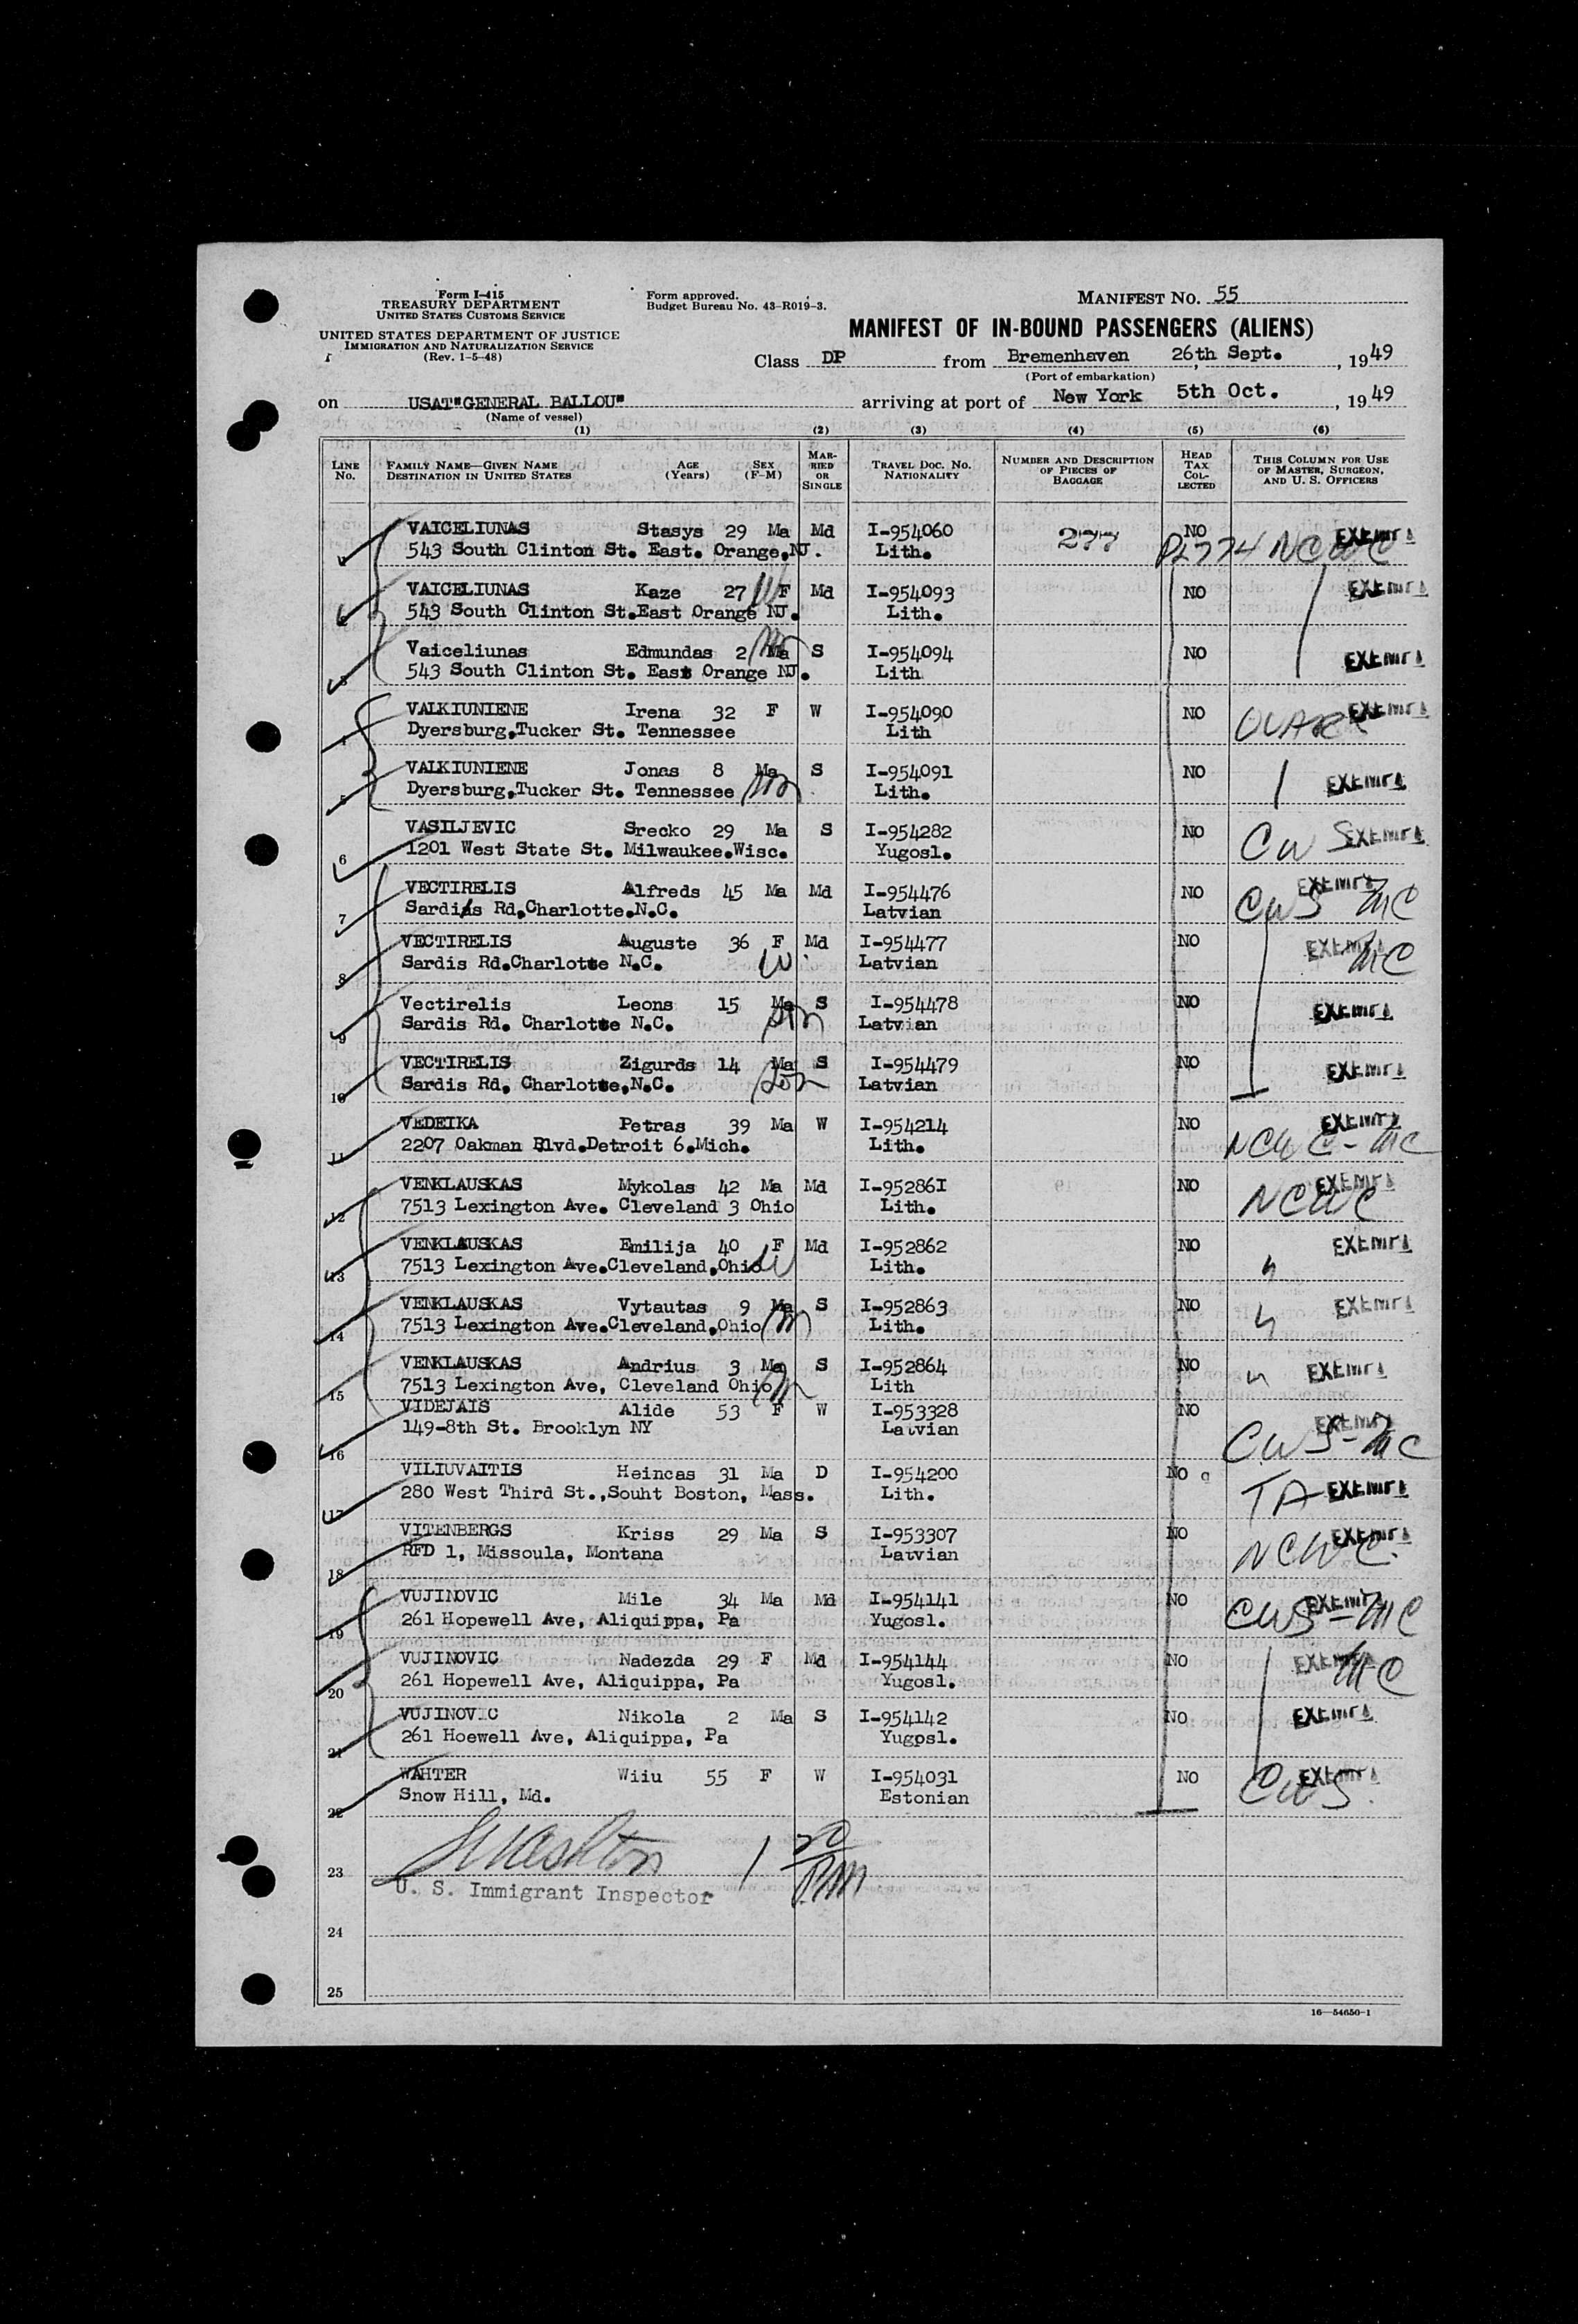 Form I-415
TREASURY DEPARTMENT
UNITED STATES CUSTOMS SERVICE
UNITED STATES DEPARTMENT OF JUSTICE
IMMIGRATION AND NATURALIZATION SERVICE
(Rev. 1-5-48)
Form approved.
Budget Bureau No. 43-R019-3.
MANIFEST NO. 55
MANIFEST OF IN-BOUND PASSENGERS (ALIENS)
Class DP from Bremenhaven 26th Sept., 1949
(Port of embarkation)
on USAT"GENERAL BALLOU" arriving at port of New York 5th Oct., 1949
(Name of vessel)
(1) (2) (3) (4) (5) (6)
LINE NO.
FAMILY NAME—GIVEN NAME
DESTINATION IN UNITED STATES
AGE (Years)
SEX (F-M)
MARRIED OR SINGLE
TRAVEL DOC. NO.
NATIONALITY
NUMBER AND DESCRIPTION OF PIECES OF BAGGAGE
HEAD TAX COLLECTED
THIS COLUMN FOR USE OF MASTER, SURGEON, AND U. S. OFFICERS
1 VAICELIUNAS Stasys 29 Ma Md I-954060 277 NO NCWC EXEMPT
543 South Clinton St. East. Orange,NJ. Lith.
2 VAICELIUNAS Kaze 27 W F Md I-954093 NO EXEMPT
543 South Clinton St.East Orange NJ. Lith.
3 Vaiceliunas Edmundas 2 Ma S I-954094 NO EXEMPT
543 South Clinton St. East Orange NJ. Lith
4 VALKIUNIENE Irena 32 F W I-954090 NO EXEMPT
Dyersburg,Tucker St. Tennessee Lith
5 VALKIUNIENE Jonas 8 Ma S I-954091 NO EXEMPT
Dyersburg,Tucker St. Tennessee Lith.
6 VASILJEVIC Srecko 29 Ma S I-954282 NO CWS EXEMPT
1201 West State St. Milwaukee.Wisc. Yugosl.
7 VECTIRELIS Alfreds 45 Ma Md I-954476 NO EXEMPT
Sardis Rd,Charlotte.N.C. Latvian CWS MC
8 VECTIRELIS Auguste 36 F Md I-954477 NO EXEMPT
Sardis Rd.Charlotte N.C. W Latvian MC
9 Vectirelis Leons 15 Ma S I-954478 NO EXEMPT
Sardis Rd. Charlotte N.C. son Latvian
10 VECTIRELIS Zigurds 14 Ma S I-954479 NO EXEMPT
Sardis Rd, Charlotte,N.C. son Latvian
11 VEDEIKA Petras 39 Ma W I-954214 NO EXEMPT
2207 Oakman Blvd.Detroit 6.Mich. Lith. NCWC-MC
12 VENKLAUSKAS Mykolas 42 Ma Md I-952861 NO EXEMPT
7513 Lexington Ave. Cleveland 3 Ohio Lith. NCWC
13 VENKLAUSKAS Emilija 40 F Md I-952862 NO EXEMPT
7513 Lexington Ave.Cleveland,Ohio W Lith.
14 VENKLAUSKAS Vytautas 9 Ma S I-952863 NO EXEMPT
7513 Lexington Ave.Cleveland,Ohio Lith.
15 VENKLAUSKAS Andrius 3 Ma S I-952864 NO EXEMPT
7513 Lexington Ave, Cleveland Ohio Lith
16 VIDEJAIS Alide 53 F W I-953328 NO EXEMPT
149-8th St. Brooklyn NY Latvian CWS-MC
17 VILIUVAITIS Heincas 31 Ma D I-954200 No
280 West Third St.,Souht Boston, Mass. Lith. TA EXEMPT
18 VITENBERGS Kriss 29 Ma S I-953307 NO EXEMPT
RFD 1, Missoula, Montana Latvian NCWC.
19 VUJINOVIC Mile 34 Ma Md I-954141 NO EXEMPT
261 Hopewell Ave, Aliquippa, Pa Yugosl. CWS-MC
20 VUJINOVIC Nadezda 29 F Md I-954144 NO EXEMPT
261 Hopewell Ave, Aliquippa, Pa Yugosl. MC
21 VUJINOVIC Nikola 2 Ma S I-954142 NO EXEMPT
261 Hoewell Ave, Aliquippa, Pa Yugosl.
22 WAHTER Wiiu 55 F W I-954031 NO EXEMPT
Snow Hill, Md. Estonian CWS.
23
U. S. Immigrant Inspector 1 20 PM
24
25
16—54650-1